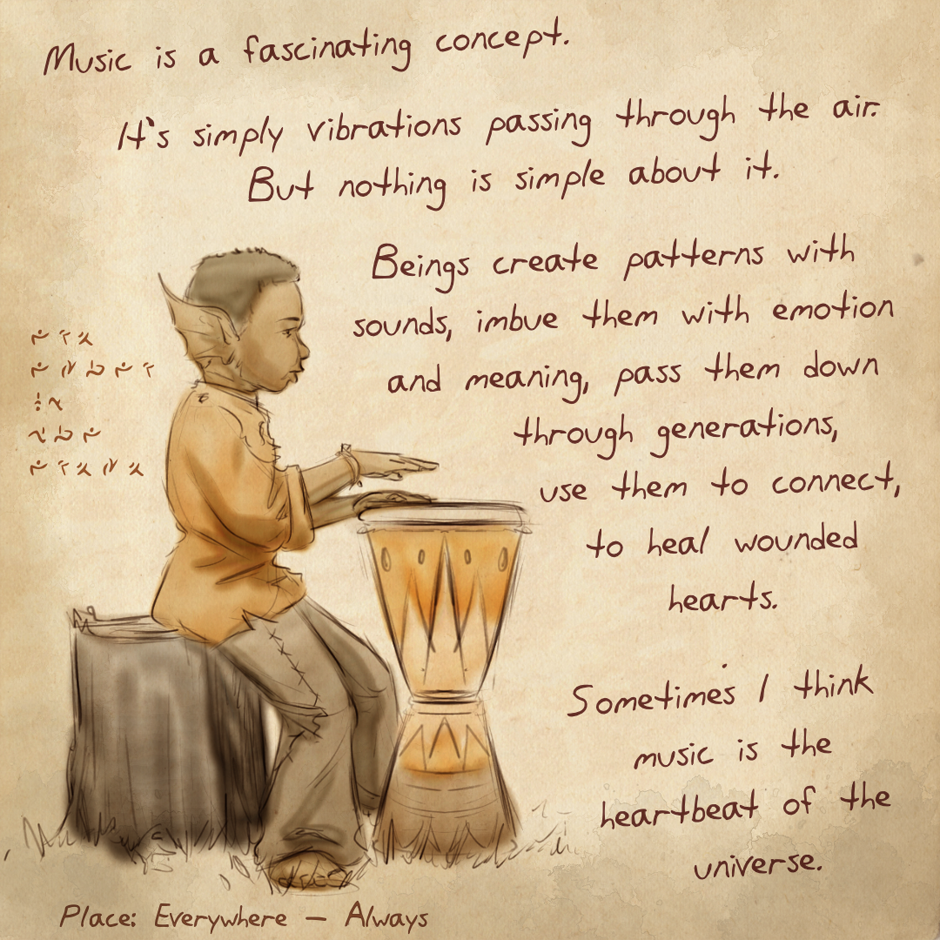 Music is a fascinating concept.
It's simply vibrations passing through the air.
But nothing is simple about it.
Beings create patterns with
sounds, imbue them with emotion
and meaning, pass them down
through generations,
use them to connect,
to heal wounded
hearts.
Sometimes I think
music is the
heartbeat of the
universe.
Place: Everywhere — Always